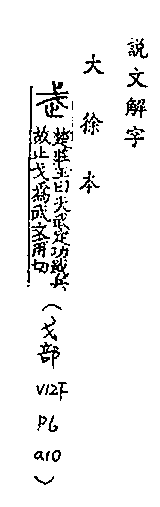 說文解字
大徐本
楚莊王曰夫武定功戢兵
故止戈爲武文甫切
(戈部
V12下
P6
a10)